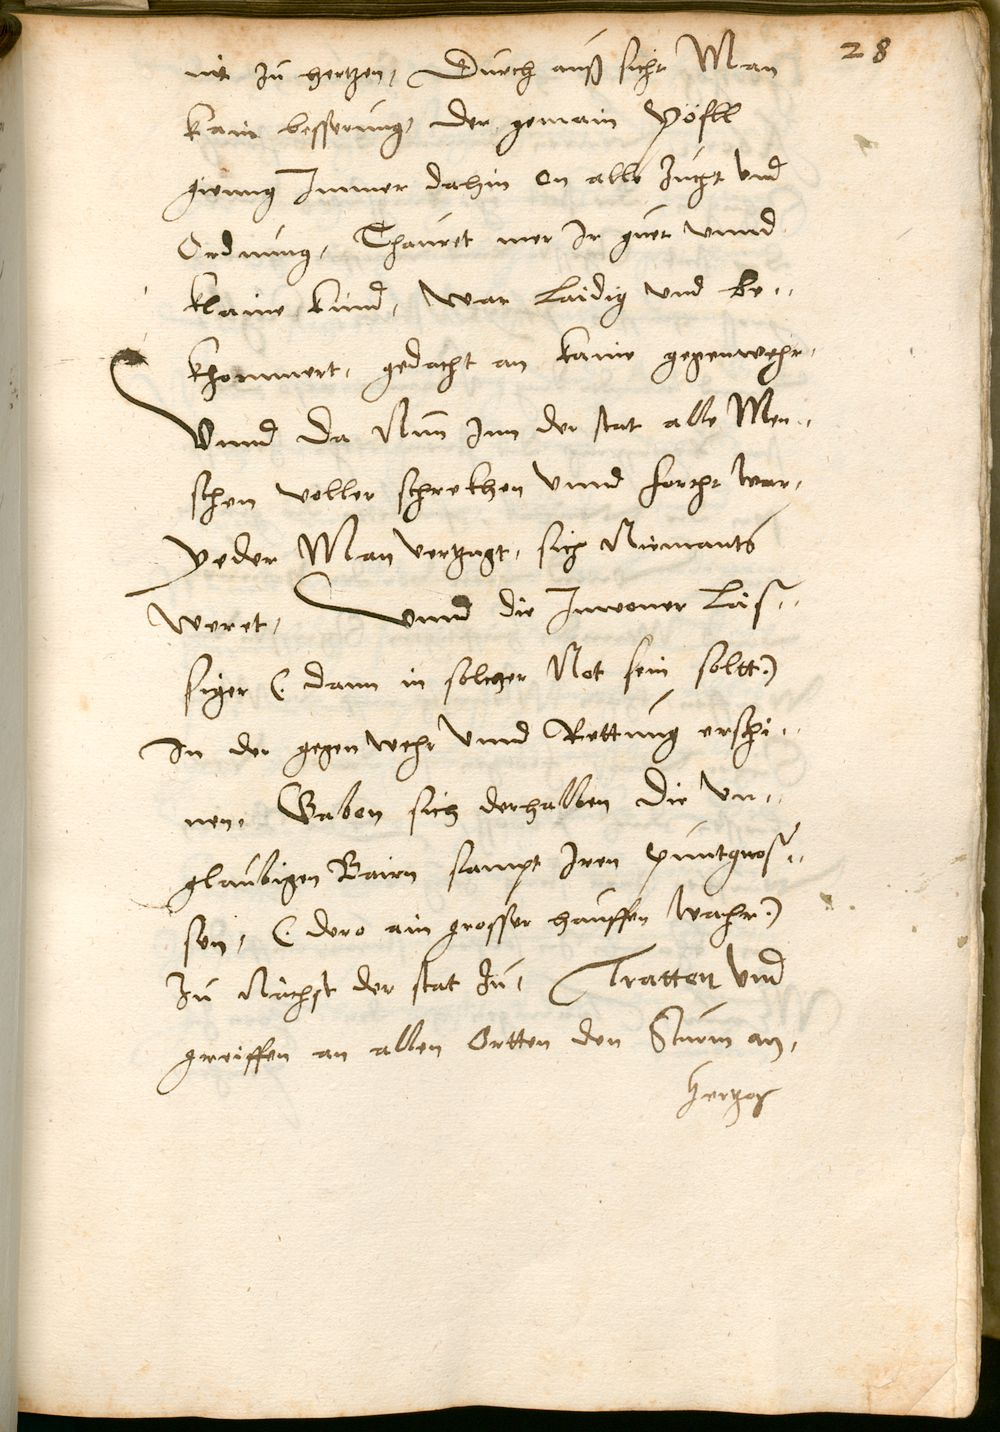 28
nit zu hertzen, Durch auß sicht Man
kain besserung, der gemain Pöfll
gieng Immer dahin on alle Zucht und
Ordnung, Thauret mer Ir guet unnd
klaine kind, war laidig und be-
khommert, gedacht an kaine gegenwehr,
Unnd da Nun Inn der stat alle Men-
schen voller schrekhen unnd forcht war,
Yeder Man vertzagt, sich Niemants
weret, Unnd die Inwoner läs-
siger (: dann in solcher Not sein soltt:)
In der gegen wehr unnd Rettung erschi-
nen, Gaben sich derhalben die un-
glaubigen Bairn sampt Iren puntgnos-
sen, (: dero ain grosser hauffen wahr:)
zu nächst der stat zu, Tratten und
greiffen an allen Ortten den Sturm an,
Hertzog